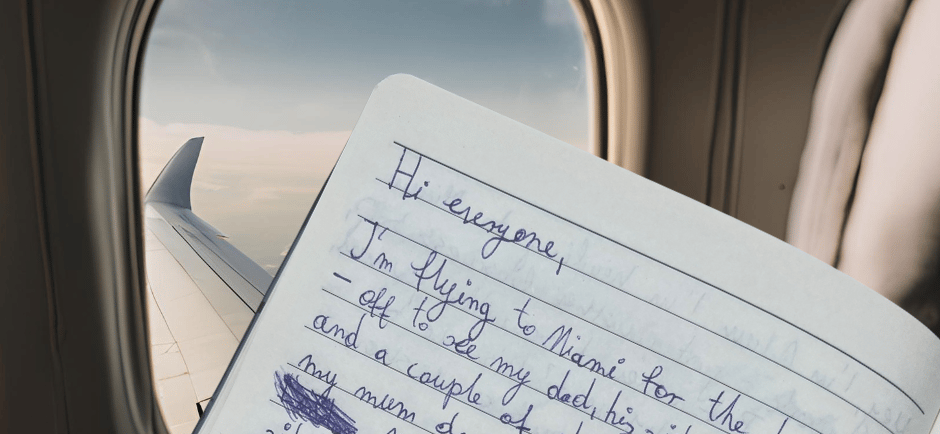 Hi everyone,
I'm flying to Miami for the
– off to see my dad, his
and a couple of
my mum